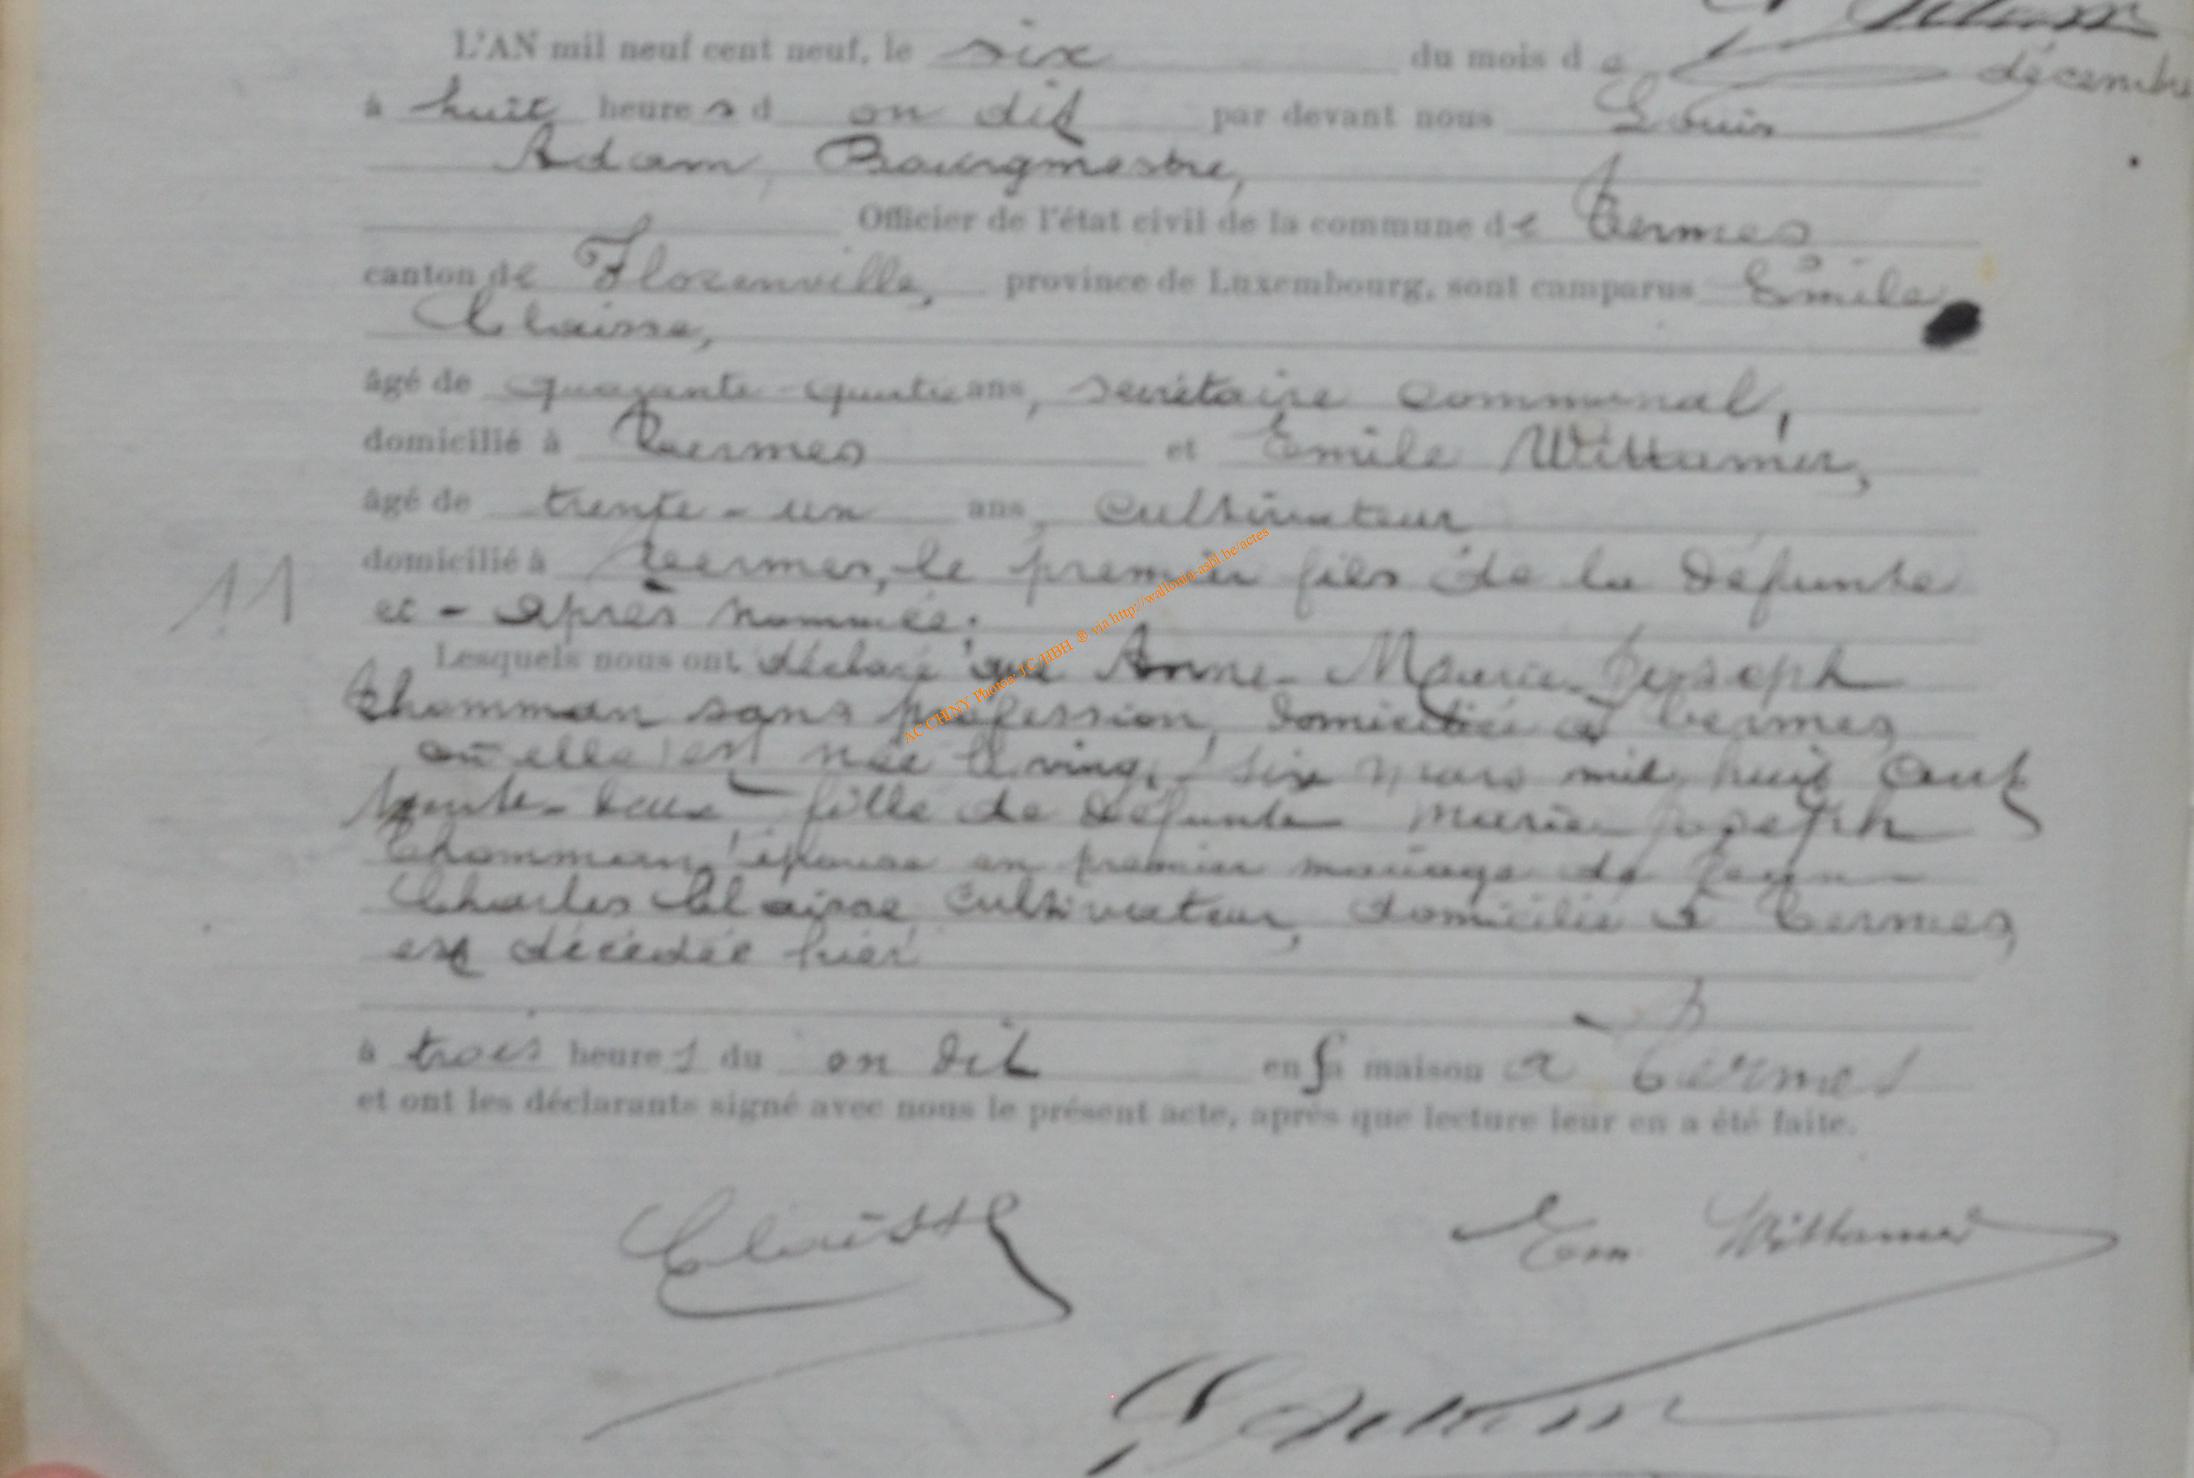 L'AN mil neuf cent neuf, le six du mois de décembre
à huit heures d on dit par devant nous Louis
Adam, Bourgmestre,
Officier de l'état civil de la commune de Termes
canton de Florenville, province de Luxembourg, sont camparus Emile
Claisse,
âgé de quarante-quatre ans, secrétaire communal,
domicilié à Termes et Emile Wittamer,
âgé de trente-un ans, cultivateur
domicilié à Termes, le premier fils de la défunte
ci-après nommée.
11
Lesquels nous ont déclaré que Anne-Marie-Joseph
Thomman sans profession, domiciliée à Termes,
où elle est née le vingt six mars mil huit cent
trente-deux fille de défunte Marie Joseph
Thomman, épouse en premier mariage de Jean-
Charles Claisse, cultivateur, domicilié à Termes,
est décédée hier
à trois heures du on dit en sa maison à Termes
et ont les déclarants signé avec nous le présent acte, après que lecture leur en a été faite.
Claisse Em Wittamer
L Adam
AC CHINY Photos: JC/HBH ® via http://wallonia-asbl.be/actes